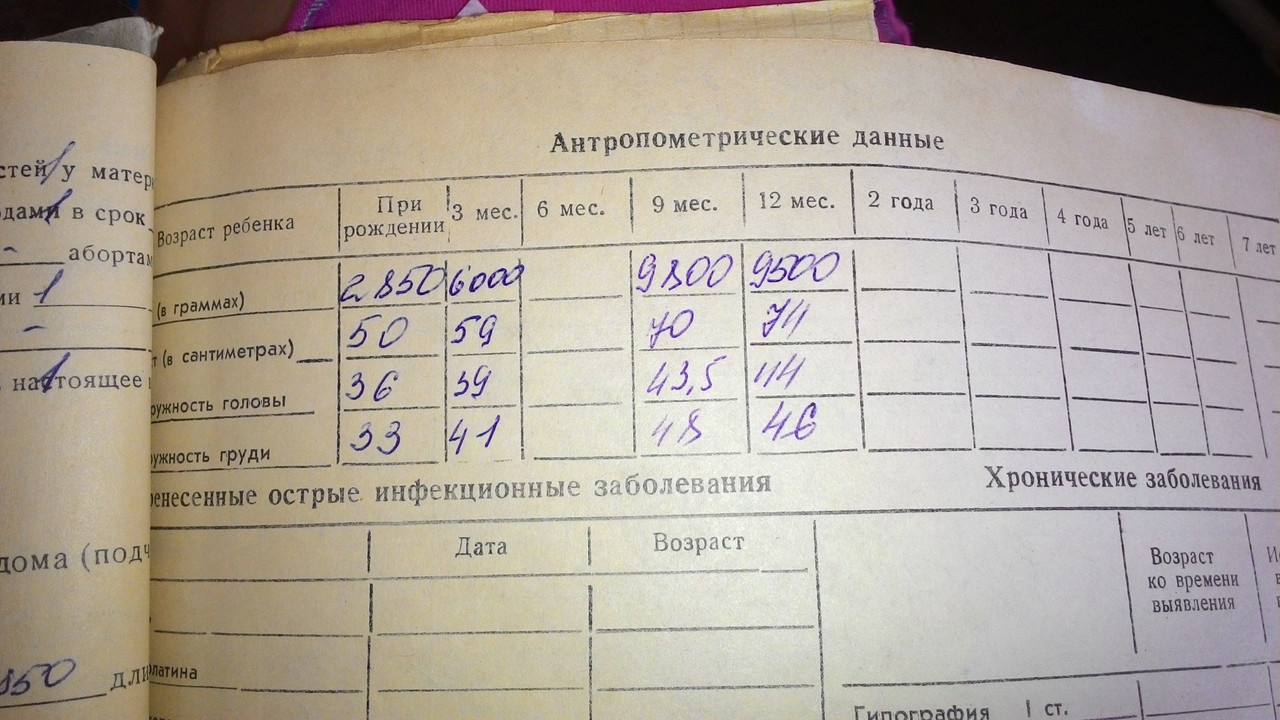 стей у матер
одами в срок
- аборта
ми 1
-
настоящее
дома (подч
850 дли
Антропометрические данные
Возраст ребенка При рождении 3 мес. 6 мес. 9 мес. 12 мес. 2 года 3 года 4 года 5 лет 6 лет 7 лет
(в граммах) 2850 6000 9800 9500
т (в сантиметрах) 50 59 70 74
ружность головы 36 39 43,5 44
ружность груди 33 41 48 46
ренесенные острые инфекционные заболевания Хронические заболевания
Дата Возраст Возраст
ко времени
выявления
латина
Гипография I ст.